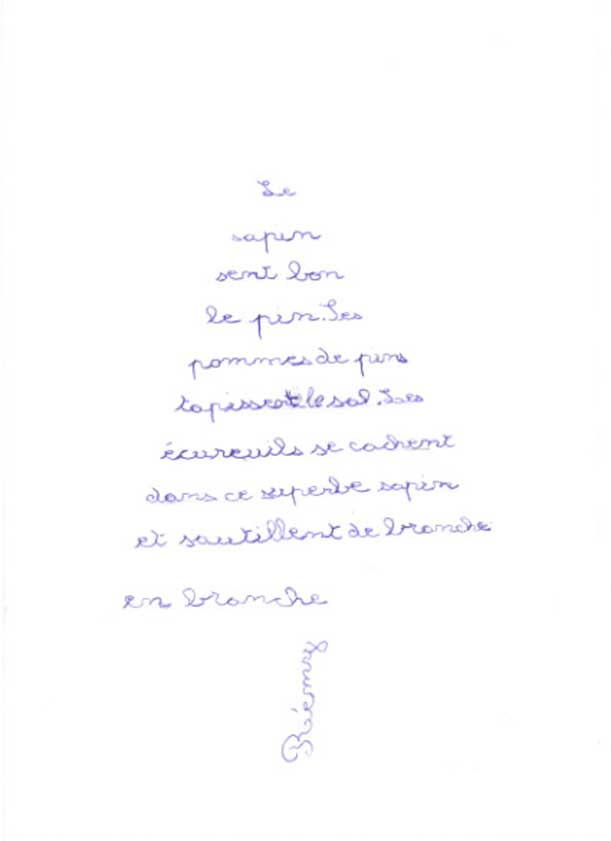 Le
sapin
sent bon
le pin. Les
pommes de pins
tapissent le sol. Les
écureuils se cachent
dans ce superbe sapin
et sautillent de branche
en branche
Rémy